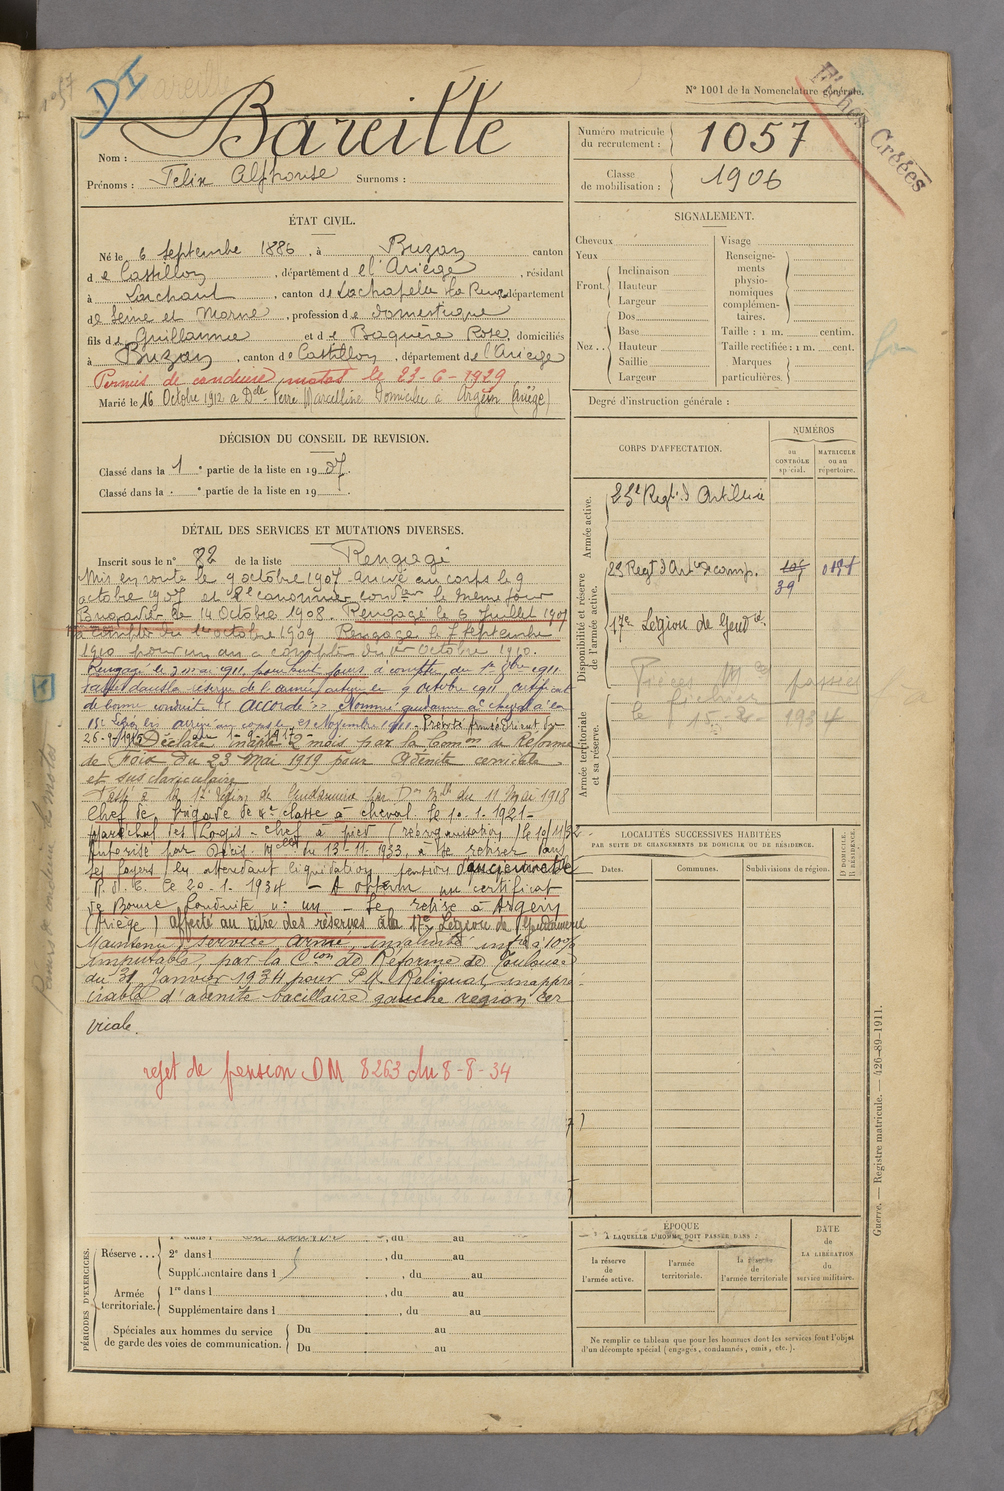 DI
N° 1001 de la Nomenclature générale.
Fiches Créées
Nom : Bareille
Prénoms : Felix Alphonse Surnoms :
Numéro matricule du recrutement : 1057
Classe de mobilisation : 1906
ÉTAT CIVIL.
Né le 6 Septembre 1886, à Buzan canton
de Castillon, département de l'Ariège, résidant
à Larchant, canton de Lachapelle la Reine, département
de Seine et Marne, profession de domestique
fils de Guillaume et de Baquère Rose, domiciliés
à Buzan, canton de Castillon, département de l'Ariège
Permis de conduire motos le 23-6-1929
Marié le 16 Octobre 1912 à Dlle Ferré Marcelline Domiciliée à Argein (Ariège)
SIGNALEMENT.
Cheveux
Yeux
Front. Inclinaison
Hauteur
Largeur
Nez.. Dos
Base
Hauteur
Saillie
Largeur
Visage
Renseignements physionomiques complémentaires.
Taille : 1 m. centim.
Taille rectifiée : 1 m. cent.
Marques particulières.
Degré d'instruction générale :
DÉCISION DU CONSEIL DE REVISION.
Classé dans la 1 e partie de la liste en 1907.
Classé dans la e partie de la liste en 19
DÉTAIL DES SERVICES ET MUTATIONS DIVERSES.
Inscrit sous le n° 82 de la liste Rengagé
Mis en route le 9 octobre 1907 arrivé au corps le 9
octobre 1907 et 2e canonnier condeur le même jour
Brigadier le 14 Octobre 1908. Rengagé le 6 Juillet 1909
à compter du 1er octobre 1909 Rengagé le 7 septembre
1910 pour un an à compter du 1er Octobre 1910.
Rengagé le 2 mai 1911, pour huit jours à compter du 1er 8bre 1911
Passé dans la réserve de l'armée active le 9 octobre 1911 certificat
de bonne conduite "accordé" Nommé gendarme à cheval à la
15e légion arrivé au corps le 21 Novembre 1911
26-9-1915 au 1-9-1917
Déclaré inapte 2 mois par la Comm de Réforme
de Foix du 23 Mai 1919 pour Adénite cervicale
et sus claviculaire
Passé à la 17e Légion de Gendarmerie par Don Mlle du 11 Mai 1918
Chef de brigade de 4e classe à cheval le 10.1.1921-
Maréchal des Logis-chef à pied (réorganisation) le 10/11/32-
Autorisé par Décis. Mlle du 13-11-1933, à se retirer dans
ses foyers en attendant liquidation pension d'ancienneté
R.d.C. le 20-1-1934 - A obtenu un certificat
de Bonne Conduite n: un - Se retire à Argein
(Ariège) affecté au titre des réserves à la 17e Légion de Gendarmerie
Maintenu service armé, invalidité infre à 10%
imputable, par la Cion de Réforme de Toulouse
du 31 Janvier 1934 pour P.I. Reliquat inappré-
ciable d'adénite bacillaire gauche région cer
vicale.
rejet de pension DM 8263 du 8-8-34
CORPS D'AFFECTATION.
NUMÉROS
au CONTRÔLE spécial.
MATRICULE ou au répertoire.
Armée active.
23e Regt d'Artillerie
Disponibilité et réserve de l'armée active.
23 Regt d'Artie de camp.
39
17e Légion de Gendie.
Armée territoriale et sa réserve.
Pièces Mles passées
le fichier
le 15-2-1934
LOCALITÉS SUCCESSIVES HABITÉES
PAR SUITE DE CHANGEMENTS DE DOMICILE OU DE RÉSIDENCE.
Dates. Communes. Subdivisions de région. D DOMICILE. R RÉSIDENCE.
PÉRIODES D'EXERCICES.
Réserve...
2e dans l , du au
Supplémentaire dans l , du au
Armée territoriale.
1re dans l , du au
Supplémentaire dans l , du au
Spéciales aux hommes du service de garde des voies de communication.
Du au
Du au
ÉPOQUE
À LAQUELLE L'HOMME DOIT PASSER DANS :
la réserve de l'armée active.
l'armée territoriale.
la réserve de l'armée territoriale
DATE DE LA LIBÉRATION du service militaire.
Ne remplir ce tableau que pour les hommes dont les services font l'objet
d'un décompte spécial (engagés, condamnés, omis, etc.).
Guerre. — Registre matricule. — 426-89-1911.
Permis de conduire les motos